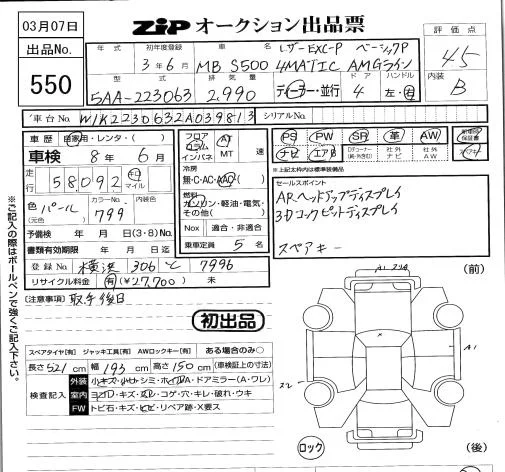 03月07日
ZIP オークション出品票
出品No.
550
年式 初年度登録 車名 レザーEXC-P ベーシックP
3年6月 MB S500 4MATIC AMGライン
型式 排気量 ドア ハンドル
5AA-223063 2,990 ディーラー・並行 4 左・右
評価点
4.5
内装
B
車台No. W1K2230632A039813 シリアルNo.
車歴 自家用・レンタ・( )
車検 8年 6月
走行 58,092 km マイル
色 (元色) パール カラーNo. 799 内装色
予備検 年 月 日(3・8)No.
書類有効期限 年 月 日迄
登録No. 横浜 306 7996
リサイクル料金 有(¥27,700) 未
フロア コラム インパネ AT MT 速
冷房 無・C・AC・AAC( )
燃料 ガソリン・軽油・電気・その他( )
Nox 適合・非適合
乗車定員 5名
PS PW SR 革 AW
ナビ エアB 社外ナビ 社外AW
※上記太枠内は標準装備品
セールスポイント
ARヘッドアップディスプレイ
3Dコックピットディスプレイ
スペアキー
[注意事項] 取手後日
初出品
スペアタイヤ[有] ジャッキ工具[有] AWロックキー[有] ある場合のみ○
長さ 521 cm 幅 193 cm 高さ 150 cm (車検証上の寸法)
検査記入
外装 小キズ・小凹・シミ・ホイルA・ドアミラー(A・ワレ)
室内 ヨゴレ・キズ・スレ・コゲ・穴・キレ・破れ・ウキ
FW トビ石・キズ・ヒビ・リペア跡・X要ス
※ご記入の際はボールペンで強くご記入下さい。
(前)
A1
A1
ロック
(後)